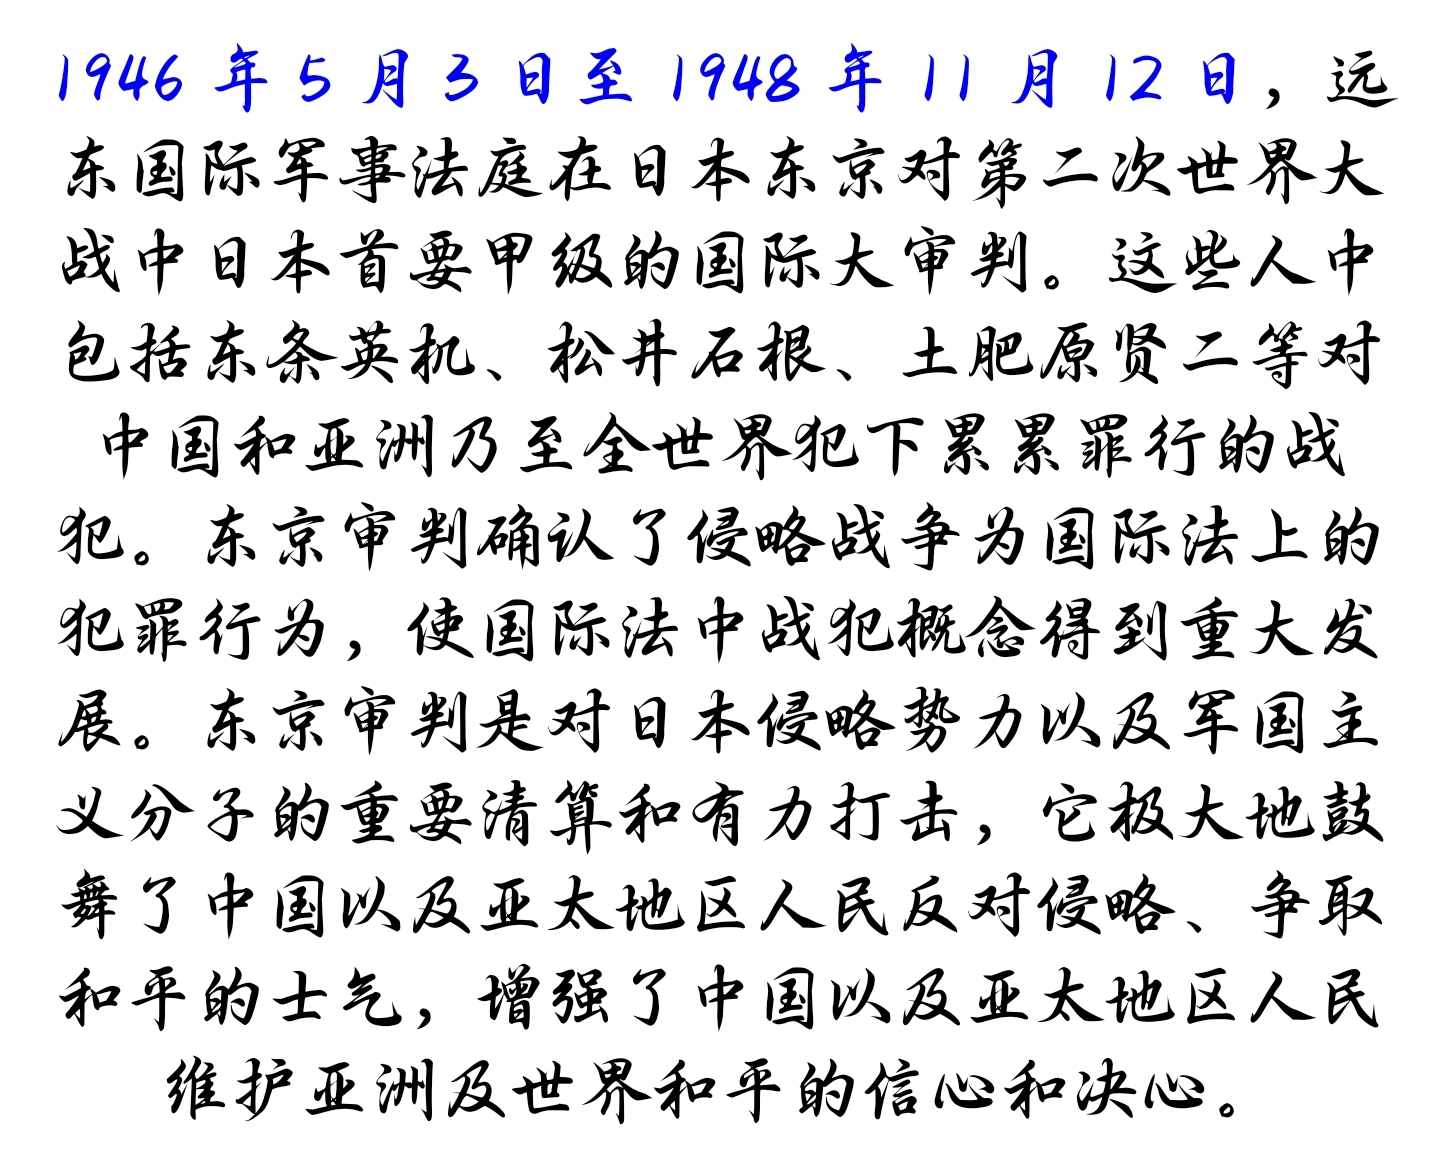 1946 年 5 月 3 日至 1948 年 11 月 12 日，远
东国际军事法庭在日本东京对第二次世界大
战中日本首要甲级的国际大审判。这些人中
包括东条英机、松井石根、土肥原贤二等对
中国和亚洲乃至全世界犯下累累罪行的战
犯。东京审判确认了侵略战争为国际法上的
犯罪行为，使国际法中战犯概念得到重大发
展。东京审判是对日本侵略势力以及军国主
义分子的重要清算和有力打击，它极大地鼓
舞了中国以及亚太地区人民反对侵略、争取
和平的士气，增强了中国以及亚太地区人民
维护亚洲及世界和平的信心和决心。